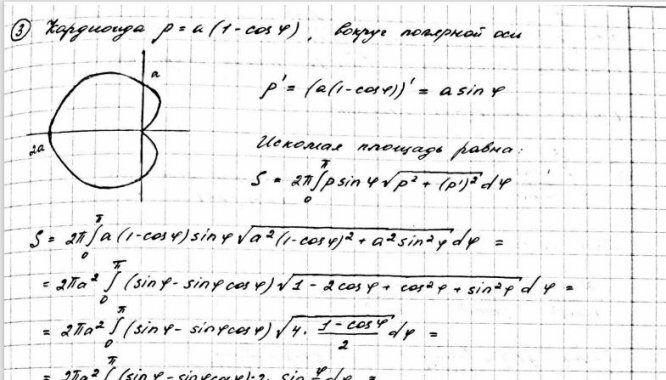 ③ Кардиоида ρ = a(1-cosφ), вокруг полярной оси
a
2a
ρ' = (a(1-cosφ))' = a sinφ
Искомая площадь равна:
S = 2π∫₀^π ρ sinφ √(ρ² + (ρ')²) dφ
S = 2π∫₀^π a(1-cosφ) sinφ √(a²(1-cosφ)² + a² sin²φ) dφ =
= 2πa² ∫₀^π (sinφ - sinφcosφ) √(1 - 2cosφ + cos²φ + sin²φ) dφ =
= 2πa² ∫₀^π (sinφ - sinφcosφ) √(4 · (1-cosφ)/2) dφ =
= 2πa² ∫^π (sinφ - sinφcosφ) · 2 · sin φ/2 dφ =